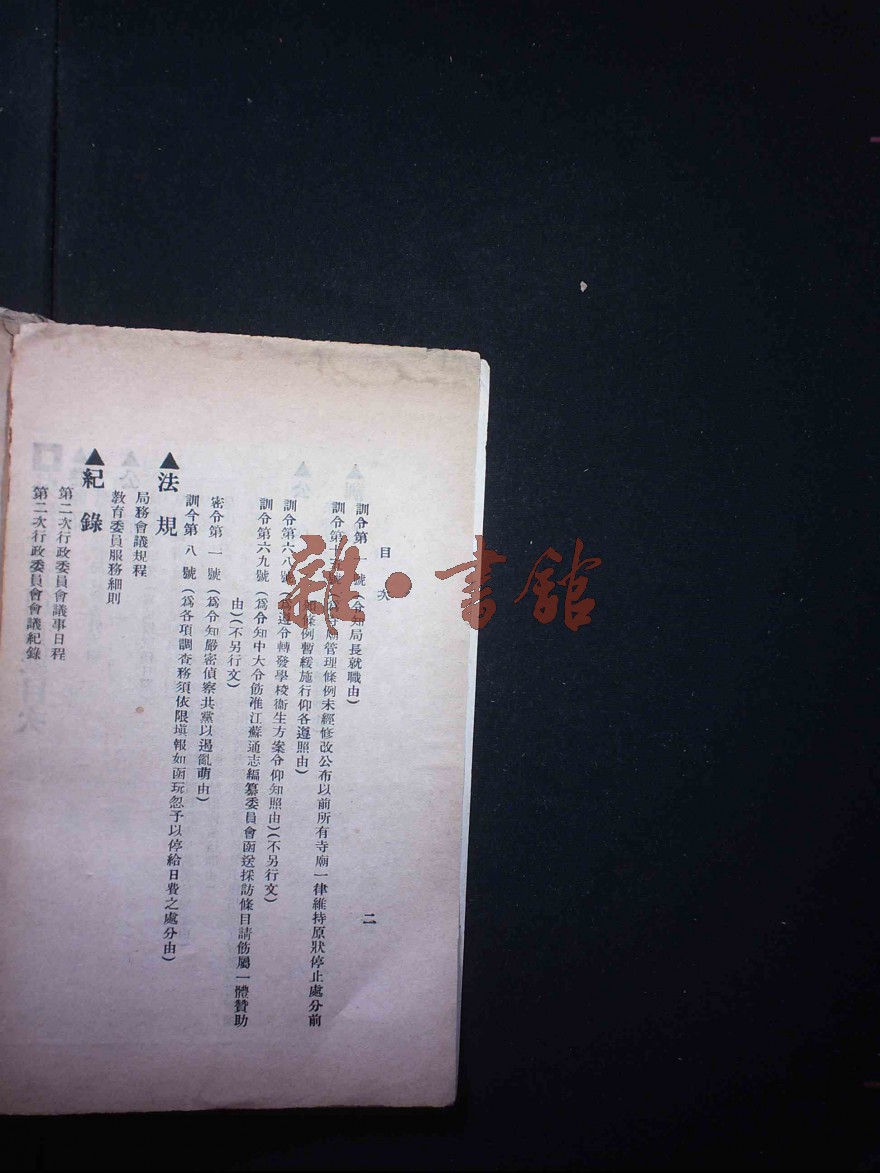 目次
二
訓令第一號(令知局長就職由)
訓令第十三號(爲寺廟管理條例未經修改公布以前所有寺廟一律維持原狀停止處分前
如條例暫緩施行仰各遵照由)
訓令第六八號(爲遵令轉發學校衞生方案令仰知照由)(不另行文)
訓令第六九號(爲令知中大令飭准江蘇通志編纂委員會函送採訪條目請飭屬一體贊助
由)(不另行文)
密令第一號(爲令知嚴密偵察共黨以遏亂萌由)
訓令第八號(爲各項調查務須依限塡報如函玩忽予以停給日費之處分由)
▲法規
局務會議規程
教育委員服務細則
▲紀錄
第二次行政委員會議事日程
第二次行政委員會會議紀錄
雜·書館